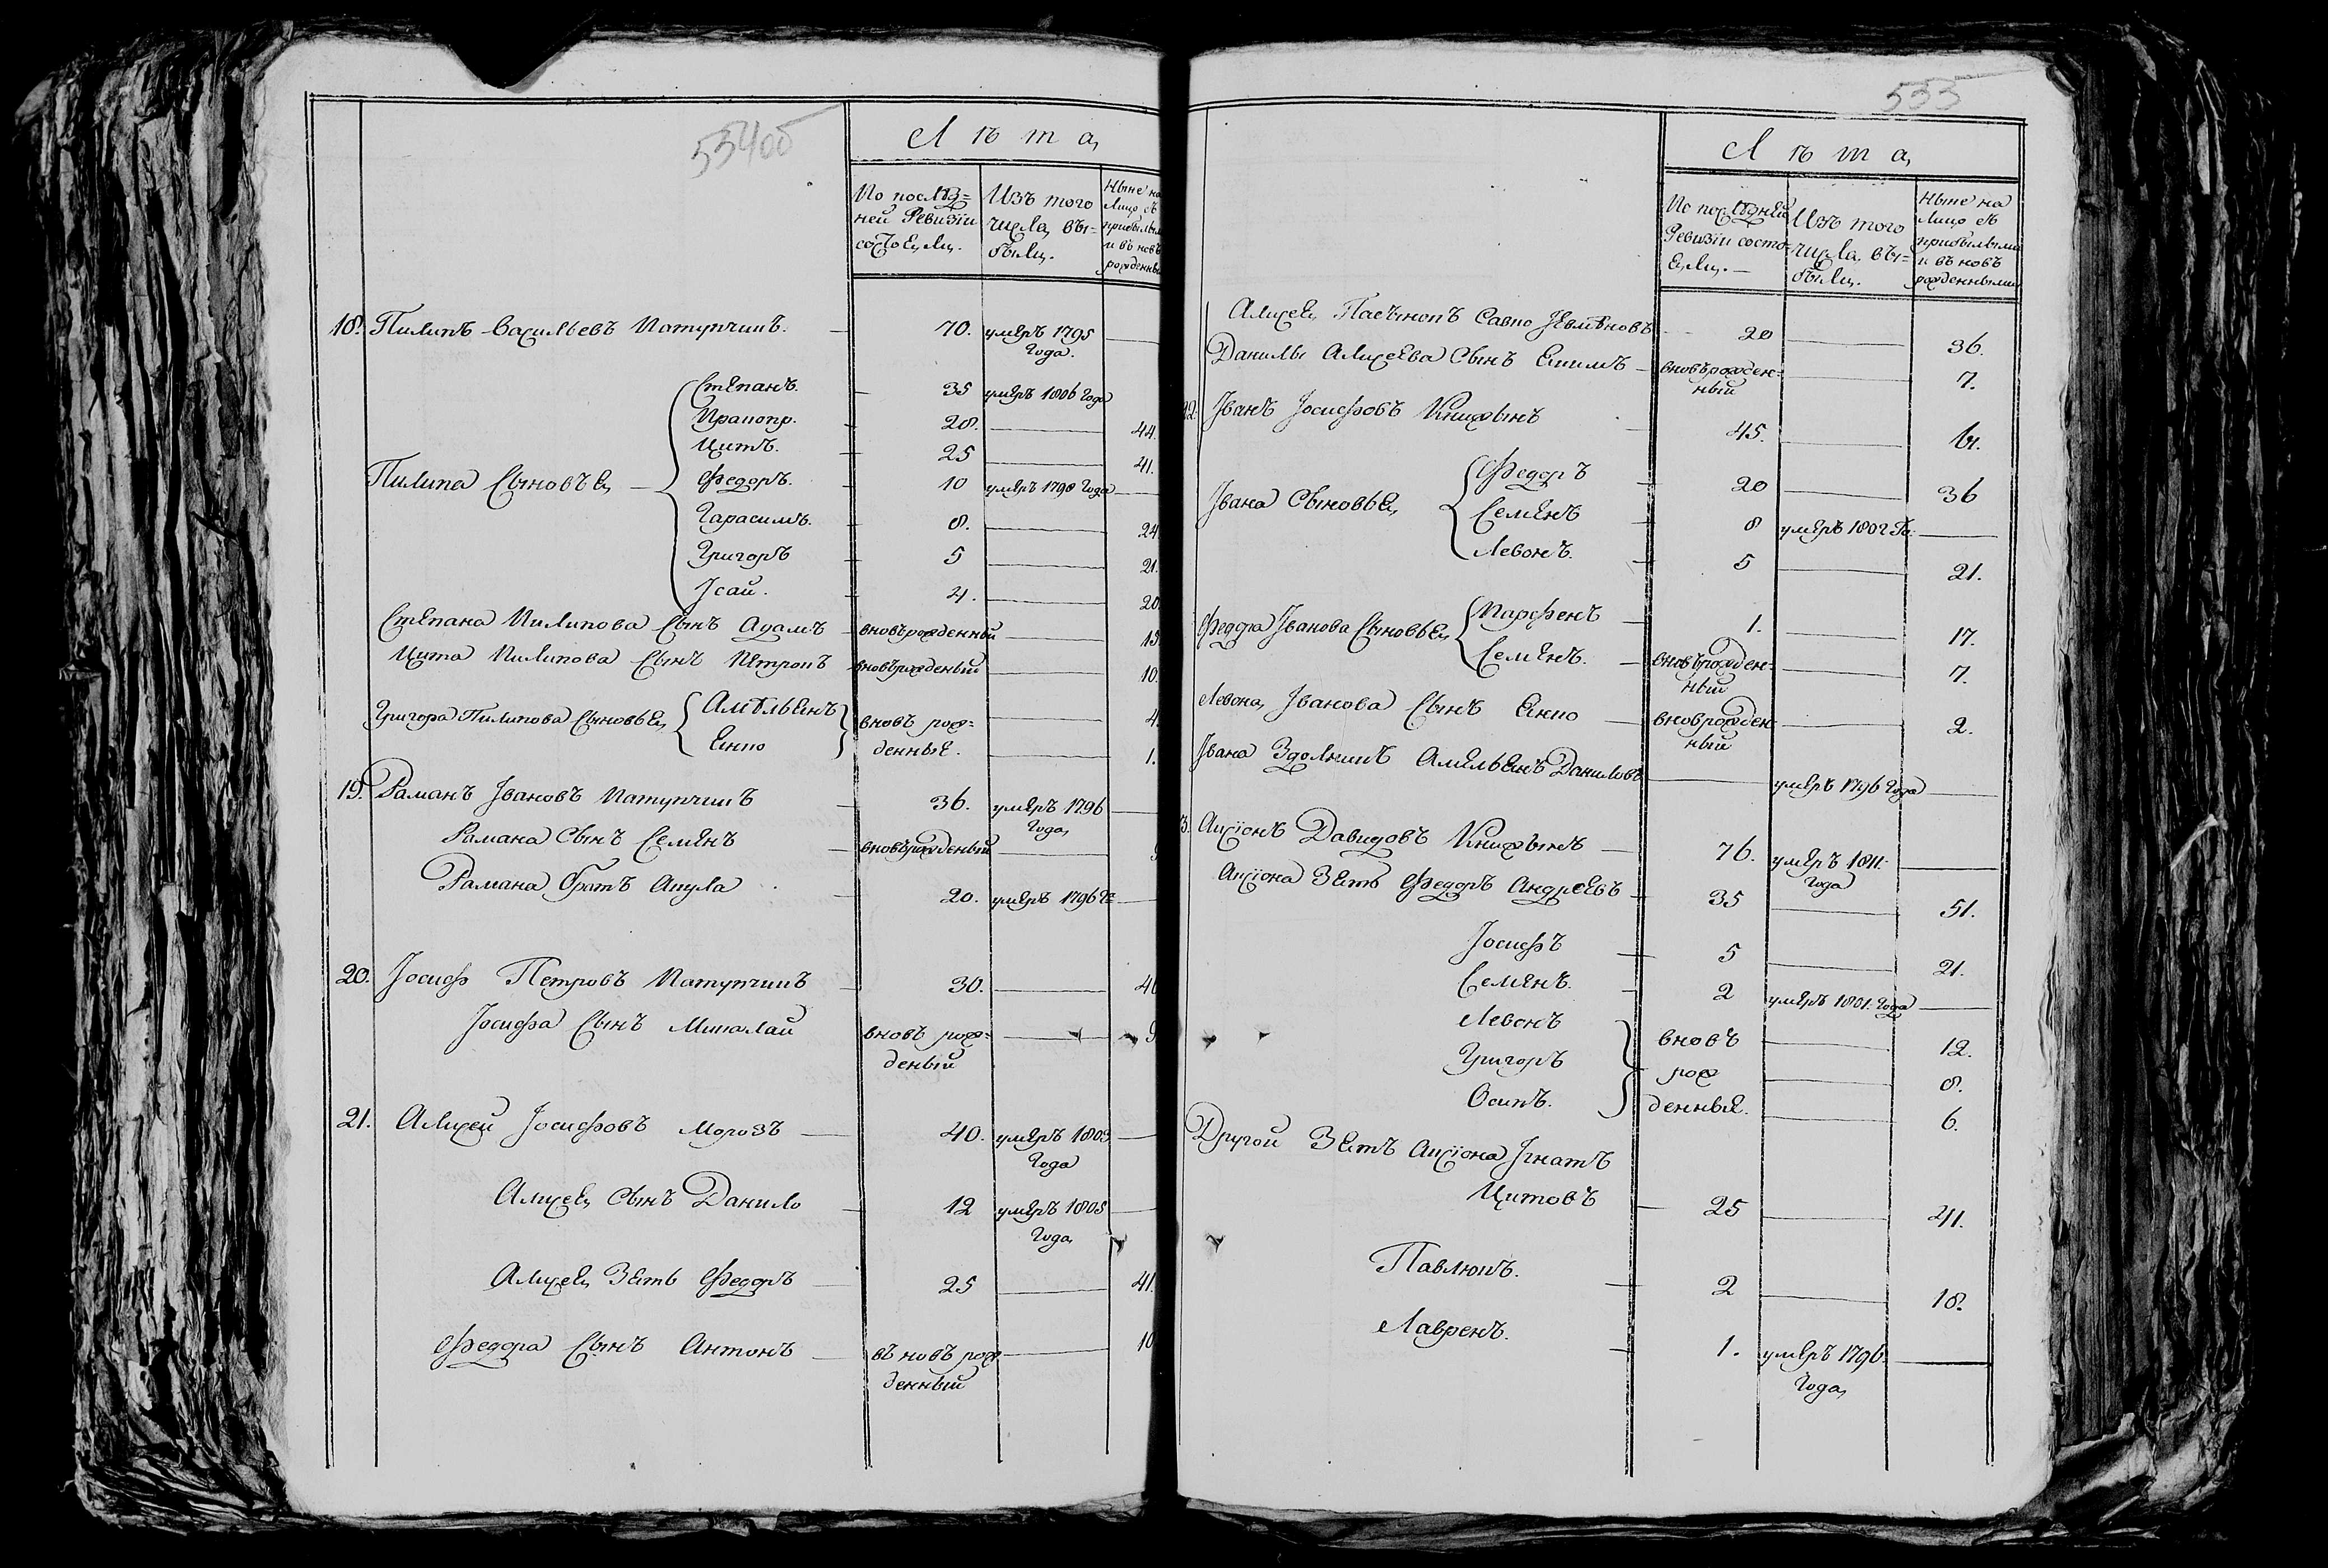 534об
Лѣта
По послѣд=
ней Ревизіи
состояли.
Изъ того
числа вы=
были.
Ныне на
лицо съ
прибылыми
и въ новь
рожденны
18. Пилипъ Васильевъ Катупчикъ. 70. умеръ 1795
Года.
Степанъ. 35 умеръ 1806 Года
Пракопъ. 28. 44.
Цитъ. 25 41.
Пилипа Сыновья Федоръ. 10 умеръ 1798 Года
Гарасимъ. 8. 24
Григоръ 5 21.
Ісай. 4. 20
Степана Пилипова Сынъ Адамъ вновьрожденный 15
Цита Пилипова Сынъ Петрокъ вновьрожденый 10.
Григора Пилипова Сыновья Амѣльянъ вновъ рож= 4
Янко денные. 1.
19. Раманъ Івановъ Катупчикъ 36. умеръ 1796
Года
Рамана Сынъ Семенъ вновьрожденый 9
Рамана братъ Акула 20. умеръ 1796 Го
20. Іосифъ Петровъ Катупчикъ 30. 46
Іосифа Сынъ Микалай вновъ рож= 9
деный
21. Аликсей Іосифовъ Морозъ 40. умеръ 1803
Года
Аликсея Сынъ Данило 12 умеръ 1805
Года
Аликсея Зять Федоръ 25 41.
Федора Сынъ Антонъ въ новъ рож 10
денный
535
Лѣта
По послѣдней
Ревизіи состо=
яли.
Изъ того
числа вы=
были.
Ныне на
лицо съ
прибылыми
и въ новъ
рожденными
Аликсея Пасынокъ Савко 20 36.
Данилы Аликсеева Сынъ Якимъ вновърожден= 7.
ный
22. Іванъ Іосифовъ Книжынъ 45. 61.
Федоръ 20 36
Івана Сыновья Семенъ 8 умеръ 1802 Го.
Левонъ. 5 21.
Федора Іванова Сыновья Парфенъ 1. 17.
Семенъ. вновьрожден= 7.
ный
Левона Іванова Сынъ Янко вноврожден= 2.
ный
Івана Здолникъ Амельянъ Даниловъ умеръ 1796 Года
3. Аксіонъ Давидовъ Книжынъ 76. умеръ 1811.
Года
Аксіона Зять Федоръ Андреевъ 35 51.
Іосифъ 5 21.
Семенъ. 2 умеръ 1801. Года
Левонъ вновъ 12.
Григоръ рож 8.
Осипъ. денные. 6.
Другой Зять Аксіона Ігнатъ
Цитовъ 25 41.
Павлюкъ. 2 18.
Лавренъ. 1. умеръ 1796
Года